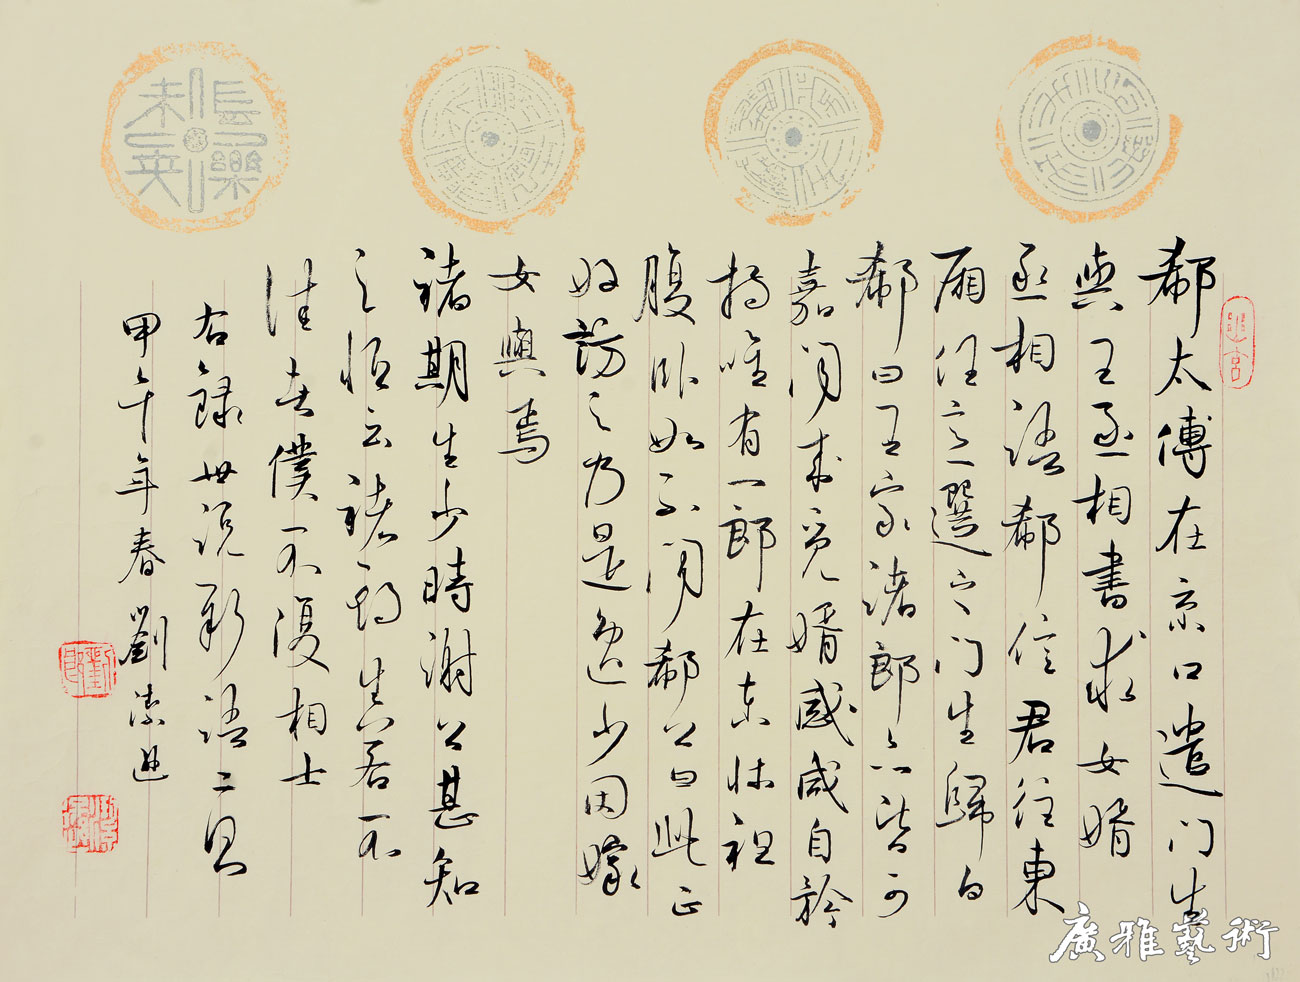 長樂未央
郗太傅在京口遣门生
與王丞相書求女婿
丞相語郗信君往東
厢任意選之门生歸白
郗曰王家諸郎亦皆可
嘉闻来觅婿咸自矜
持唯有一郎在東床袒
腹卧如不闻郗公曰此正
好訪之乃是逸少因嫁
女與焉
褚期生少時謝公甚知
之恒云褚期生若不
佳者僕不復相士
右錄世说新語二則
甲午年春劉
廣雅藝術